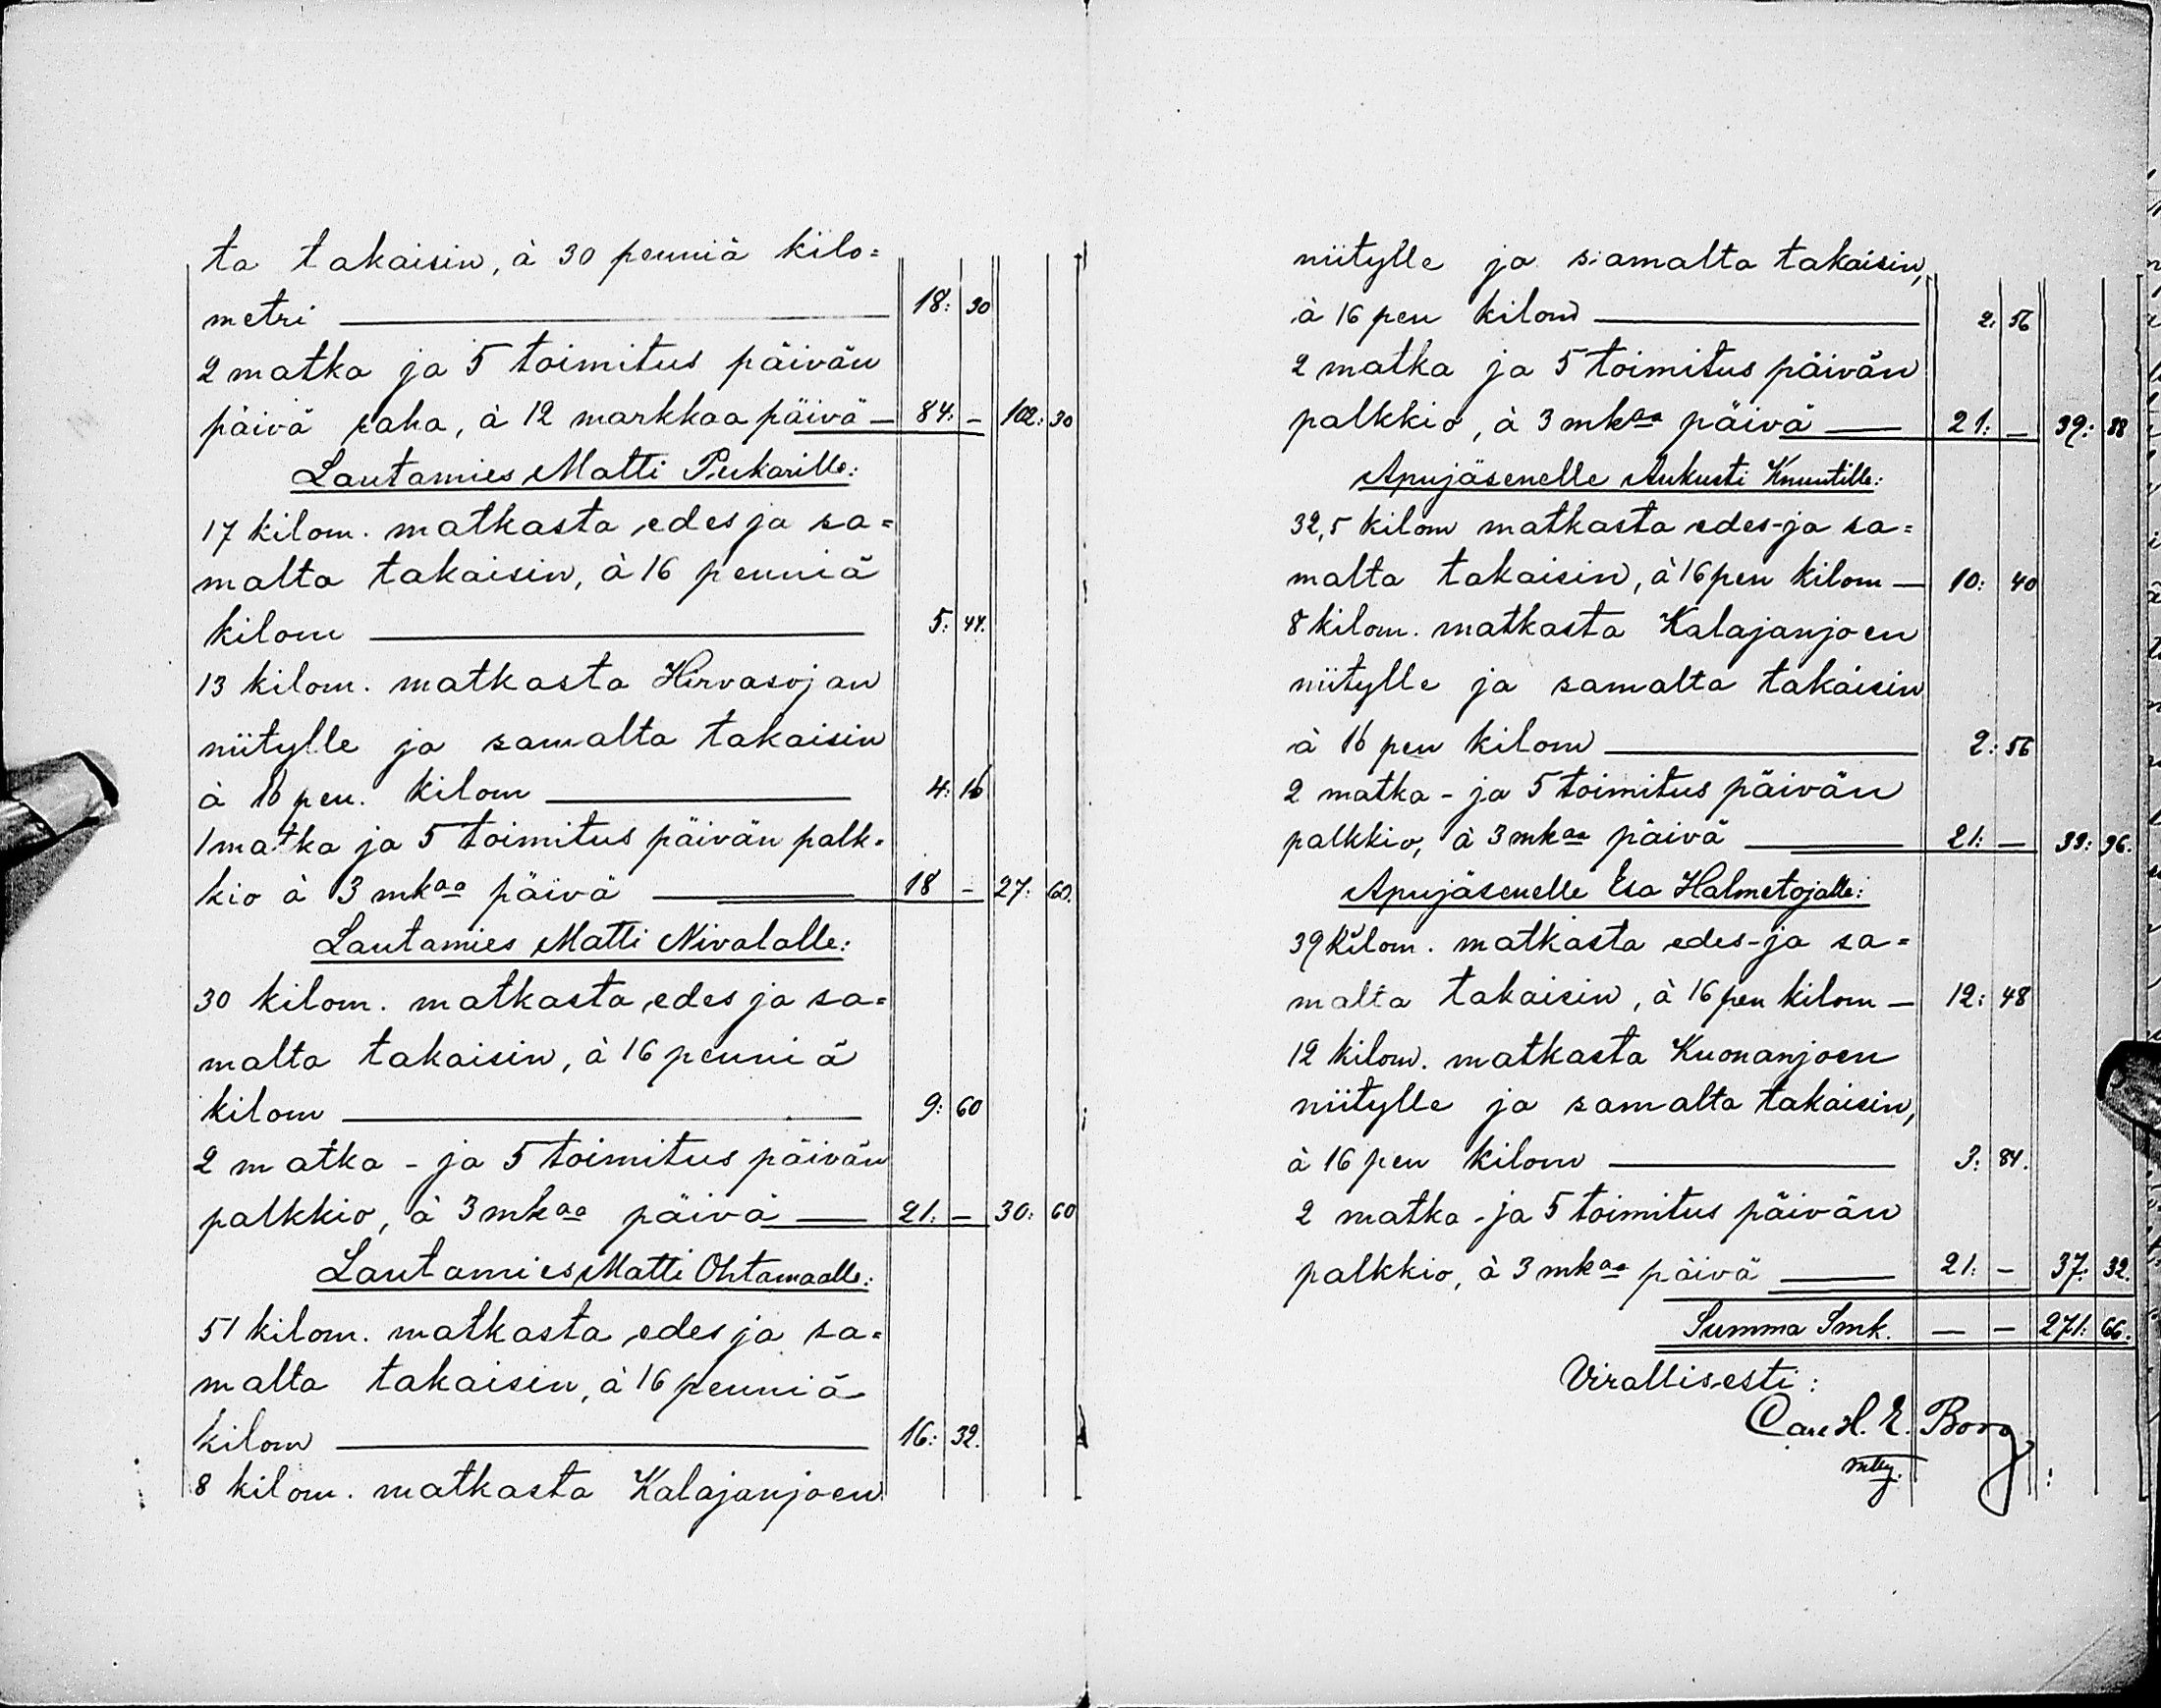 ta takaisin, à 30 penniä kilo=
metri 18: 30
2 matka ja 5 toimitus päivän
päivä raha, à 12 markkaa päivä — 84: — 102: 30
Lautamies Matti Pukarille:
17 kilom. matkasta edes ja sa=
malta takaisin, à 16 penniä
kilom 5: 44.
13 kilom. matkasta Hirvasojan
niitylle ja samalta takaisin
à 16 pen. kilom 4: 16
1 matka ja 5 toimitus päivän palk=
kio à 3 mkaa päivä 18 — 27: 60.
Lautamies Matti Nivalalle:
30 kilom. matkasta edes ja sa=
malta takaisin, à 16 penniä
kilom 9: 60
2 matka - ja 5 toimitus päivän
palkkio, à 3 mkaa päivä — 21: — 30: 60
Lautamies Matti Ohtamaalle:
51 kilom. matkasta edes ja sa=
malta takaisin, à 16 penniä
kilom 16: 32.
8 kilom. matkasta Kalajanjoen
niitylle ja samalta takaisin,
à 16 pen kilom 2: 56
2 matka ja 5 toimitus päivän
palkkio, à 3 mkaa päivä — 21: — 39: 88
Apujäsenelle Aukusti Knuutille:
32,5 kilom matkasta edes-ja sa=
malta takaisin, à 16 pen kilom — 10: 40
8 kilom. matkasta Kalajanjoen
niitylle ja samalta takaisin
à 16 pen kilom 2: 56
2 matka - ja 5 toimitus päivän
palkkio, à 3 mkaa päivä 21: — 33: 96.
Apujäsenelle Esa Halmetojalle:
39 kilom. matkasta edes-ja sa=
malta takaisin, à 16 pen kilom — 12: 48
12 kilom. matkasta Kuonanjoen
niitylle ja samalta takaisin,
à 16 pen kilom 3: 84.
2 matka - ja 5 toimitus päivän
palkkio, à 3 mkaa päivä 21: — 37: 32.
Summa Smk. — — 271: 66.
Virallisesti:
Carl H. E. Borg